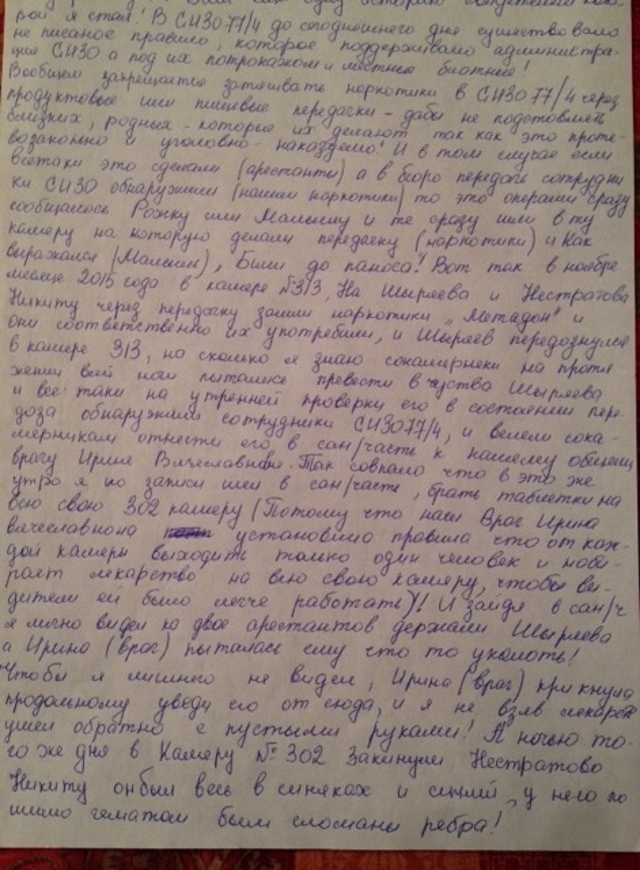 рой я стал! В СИЗО 77/4 до сегодняшнего дня существовало
не писаное правило, которое поддерживало администра-
ция СИЗО а под их потроножом и местные блатные!
Вообщем запрещается затягивать наркотики в СИЗО 77/4 через
продуктовые или пищевые передачки - дабы не подставлять
близких, родных - которые их делают так как это проти-
возаконно и уголовно - наказуемо! И в том случае если
всетаки это сделали (арестанты) а в бюро передачь сотрудни
ки СИЗО обнаружили (нашли наркотики) то это операми сразу
сообщалось Рожку или Малышу и те сразу шли в ту
камеру на которую делали передачку (наркотики) и как
выражался (Малыш), Били до паноса! Вот так в ноябре
месяце 2015 года в камере №313, На Шыряева и Нестратова
Никиту через передачку зашли наркотики "Метадон" и
они соответственно их употребили, и Шыряев передознулся
в камере 313, на сколько я знаю сокамерники на протя
жении всей ночи пытались превести в чуство Шыряева
и все таки на утренней проверки его в состоянии пере-
доза обнаружили сотрудники СИЗО 77/4, и велели сока-
мерникам отнести его в сан/часть к нашему обыч
врачу Ирине Вячеславне. Так совпало что в это же
утро я по записи шел в сан/часть, брать таблетки на
всю свою 302 камеру (Потому что наш Врач Ирина
вячеславнона установила правила что от каж-
дой камеры выходить только один человек и наби-
рает лекарство на всю свою камеру, чтобы ви-
дители ей было легче работать)! И зайдя в сан/ч
я лично видел ка двое арестантов держали Шыряева
а Ирина (врач) пыталась ему что то уколоть!
Чтобы я лишнего не видел, Ирина (врач) крикнула
продольному уведи его от сюда, и я не взяв лекарств
ушел обратно с пустыми руками! А ночью то-
го же дня в Камеру №302 Закинули Нестратово
Никиту он был весь в синяках и у него по
мимо гематом были сломаны ребра!